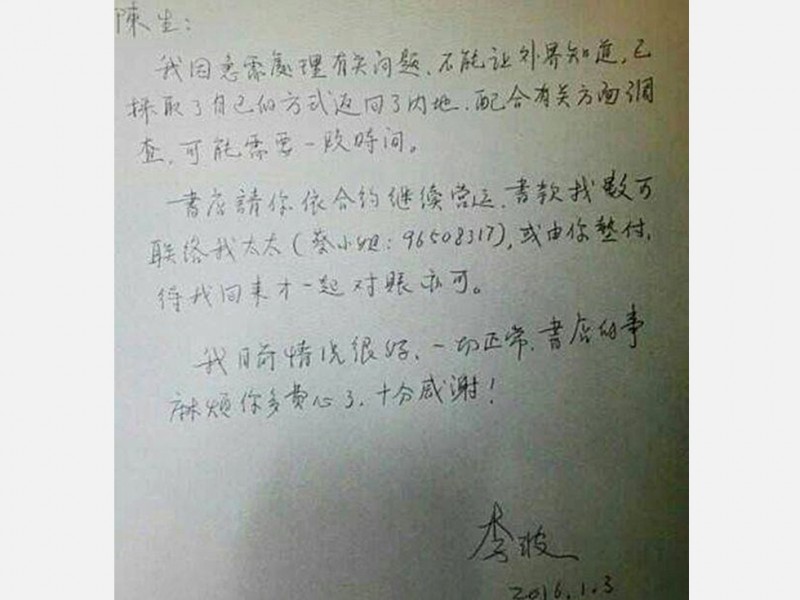 陳生：
我因急需處理有关问题，不能让外界知道，已
採取了自己的方式返回了内地，配合有关方面调
查，可能需要一段時间。
書店請你依合約继续营运，書款找數可
联络我太太（蔡小姐：96508317），或由你墊付，
待我回来才一起对賬亦可。
我目前情况很好，一切正常，書店的事
麻烦你多費心了，十分感谢！
李波
2016.1.3